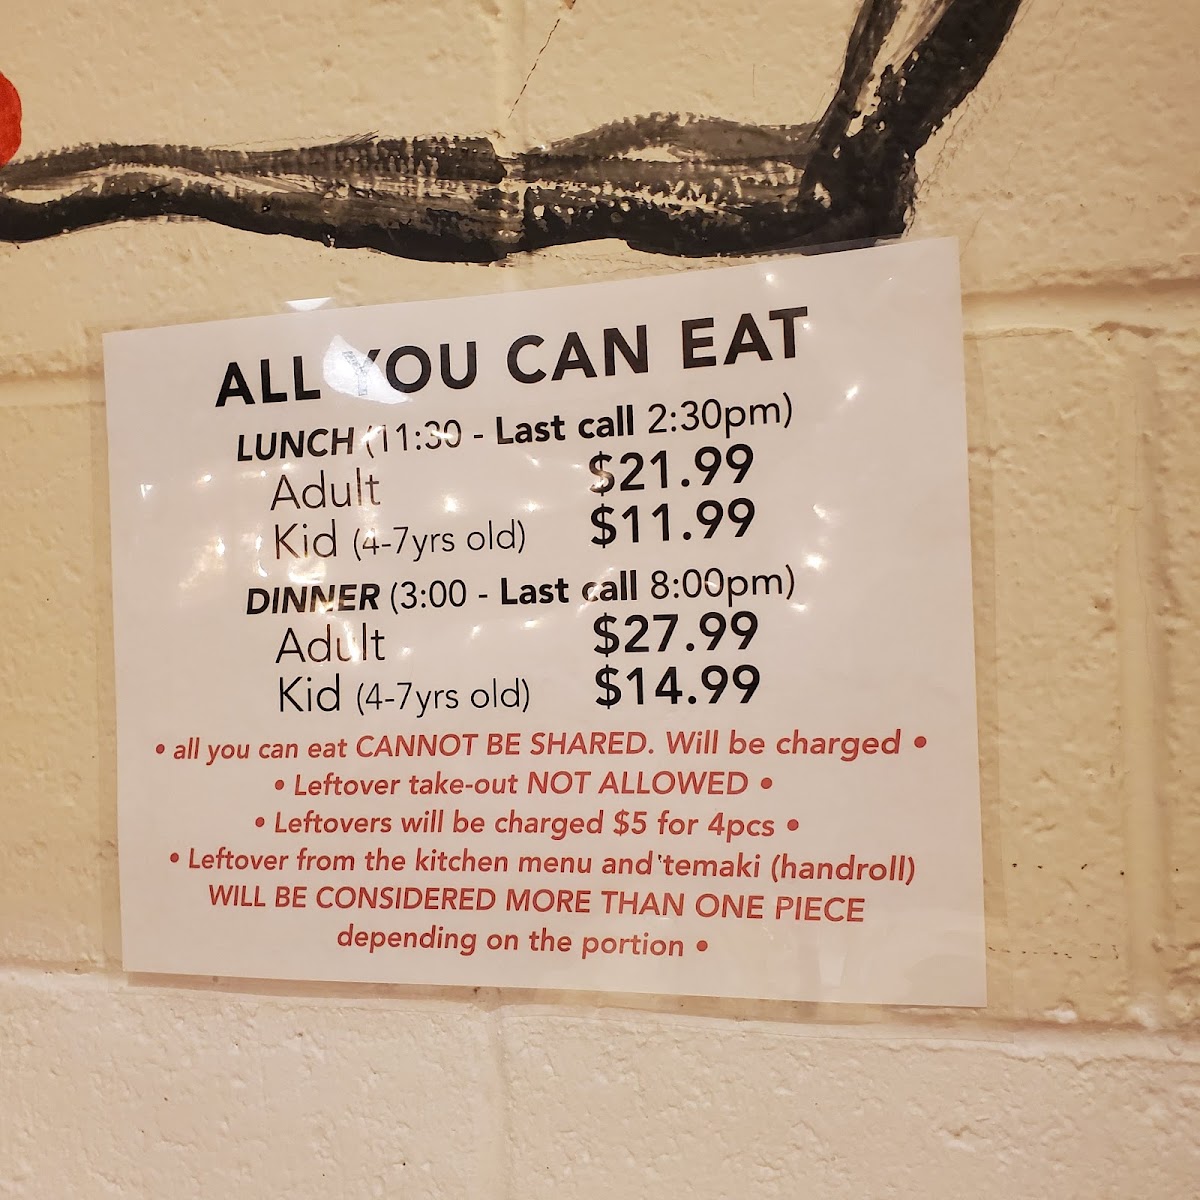 ALL YOU CAN EAT
LUNCH (11:30 - Last call 2:30pm)
Adult $21.99
Kid (4-7yrs old) $11.99
DINNER (3:00 - Last call 8:00pm)
Adult $27.99
Kid (4-7yrs old) $14.99
• all you can eat CANNOT BE SHARED. Will be charged •
• Leftover take-out NOT ALLOWED •
• Leftovers will be charged $5 for 4pcs •
• Leftover from the kitchen menu and temaki (handroll)
WILL BE CONSIDERED MORE THAN ONE PIECE
depending on the portion •